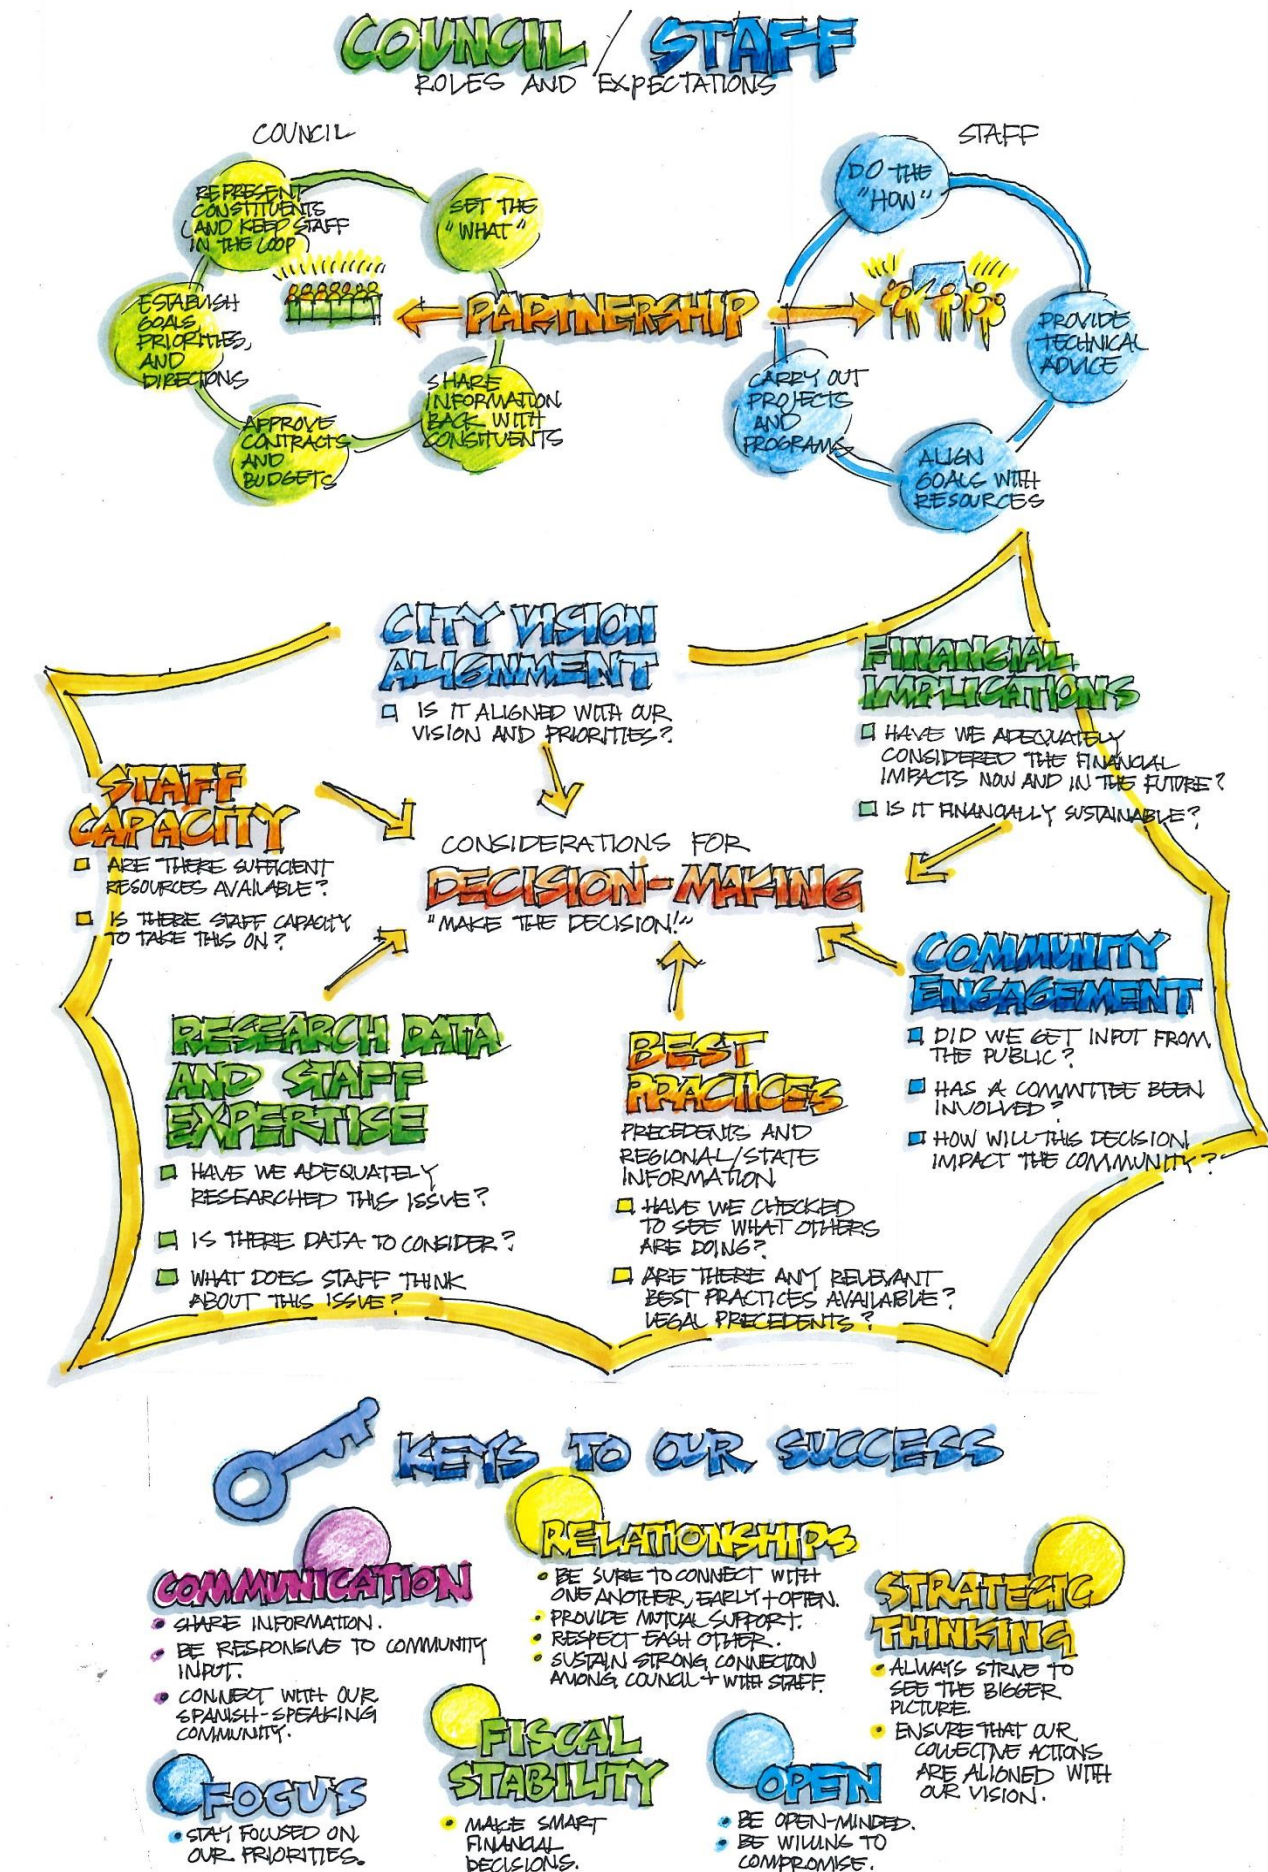 COUNCIL / STAFF
ROLES AND EXPECTATIONS
COUNCIL
REPRESENT
CONSTITUENTS
(AND KEEP STAFF
IN THE LOOP)
SET THE
"WHAT"
ESTABLISH
GOALS,
PRIORITIES,
AND
DIRECTIONS
SHARE
INFORMATION
BACK WITH
CONSTITUENTS
APPROVE
CONTRACTS
AND
BUDGETS
PARTNERSHIP
STAFF
DO THE
"HOW"
PROVIDE
TECHNICAL
ADVICE
CARRY OUT
PROJECTS
AND
PROGRAMS
ALIGN
GOALS WITH
RESOURCES
CITY VISION
ALIGNMENT
IS IT ALIGNED WITH OUR
VISION AND PRIORITIES?
FINANCIAL
IMPLICATIONS
HAVE WE ADEQUATELY
CONSIDERED THE FINANCIAL
IMPACTS NOW AND IN THE FUTURE?
IS IT FINANCIALLY SUSTAINABLE?
STAFF
CAPACITY
ARE THERE SUFFICIENT
RESOURCES AVAILABLE?
IS THERE STAFF CAPACITY
TO TAKE THIS ON?
CONSIDERATIONS FOR
DECISION-MAKING
"MAKE THE DECISION!"
COMMUNITY
ENGAGEMENT
DID WE GET INPUT FROM
THE PUBLIC?
HAS A COMMITTEE BEEN
INVOLVED?
HOW WILL THIS DECISION
IMPACT THE COMMUNITY?
RESEARCH DATA
AND STAFF
EXPERTISE
HAVE WE ADEQUATELY
RESEARCHED THIS ISSUE?
IS THERE DATA TO CONSIDER?
WHAT DOES STAFF THINK
ABOUT THIS ISSUE?
BEST
PRACTICES
PRECEDENTS AND
REGIONAL/STATE
INFORMATION
HAVE WE CHECKED
TO SEE WHAT OTHERS
ARE DOING?
ARE THERE ANY RELEVANT
BEST PRACTICES AVAILABLE?
LEGAL PRECEDENTS?
KEYS TO OUR SUCCESS
COMMUNICATION
• SHARE INFORMATION.
• BE RESPONSIVE TO COMMUNITY
INPUT.
• CONNECT WITH OUR
SPANISH-SPEAKING
COMMUNITY.
RELATIONSHIPS
• BE SURE TO CONNECT WITH
ONE ANOTHER, EARLY + OFTEN.
• PROVIDE MUTUAL SUPPORT.
• RESPECT EACH OTHER.
• SUSTAIN STRONG CONNECTION
AMONG COUNCIL + WITH STAFF.
STRATEGIC
THINKING
• ALWAYS STRIVE TO
SEE THE BIGGER
PICTURE.
• ENSURE THAT OUR
COLLECTIVE ACTIONS
ARE ALIGNED WITH
OUR VISION.
FOCUS
• STAY FOCUSED ON
OUR PRIORITIES.
FISCAL
STABILITY
• MAKE SMART
FINANCIAL
DECISIONS.
OPEN
• BE OPEN-MINDED.
• BE WILLING TO
COMPROMISE.